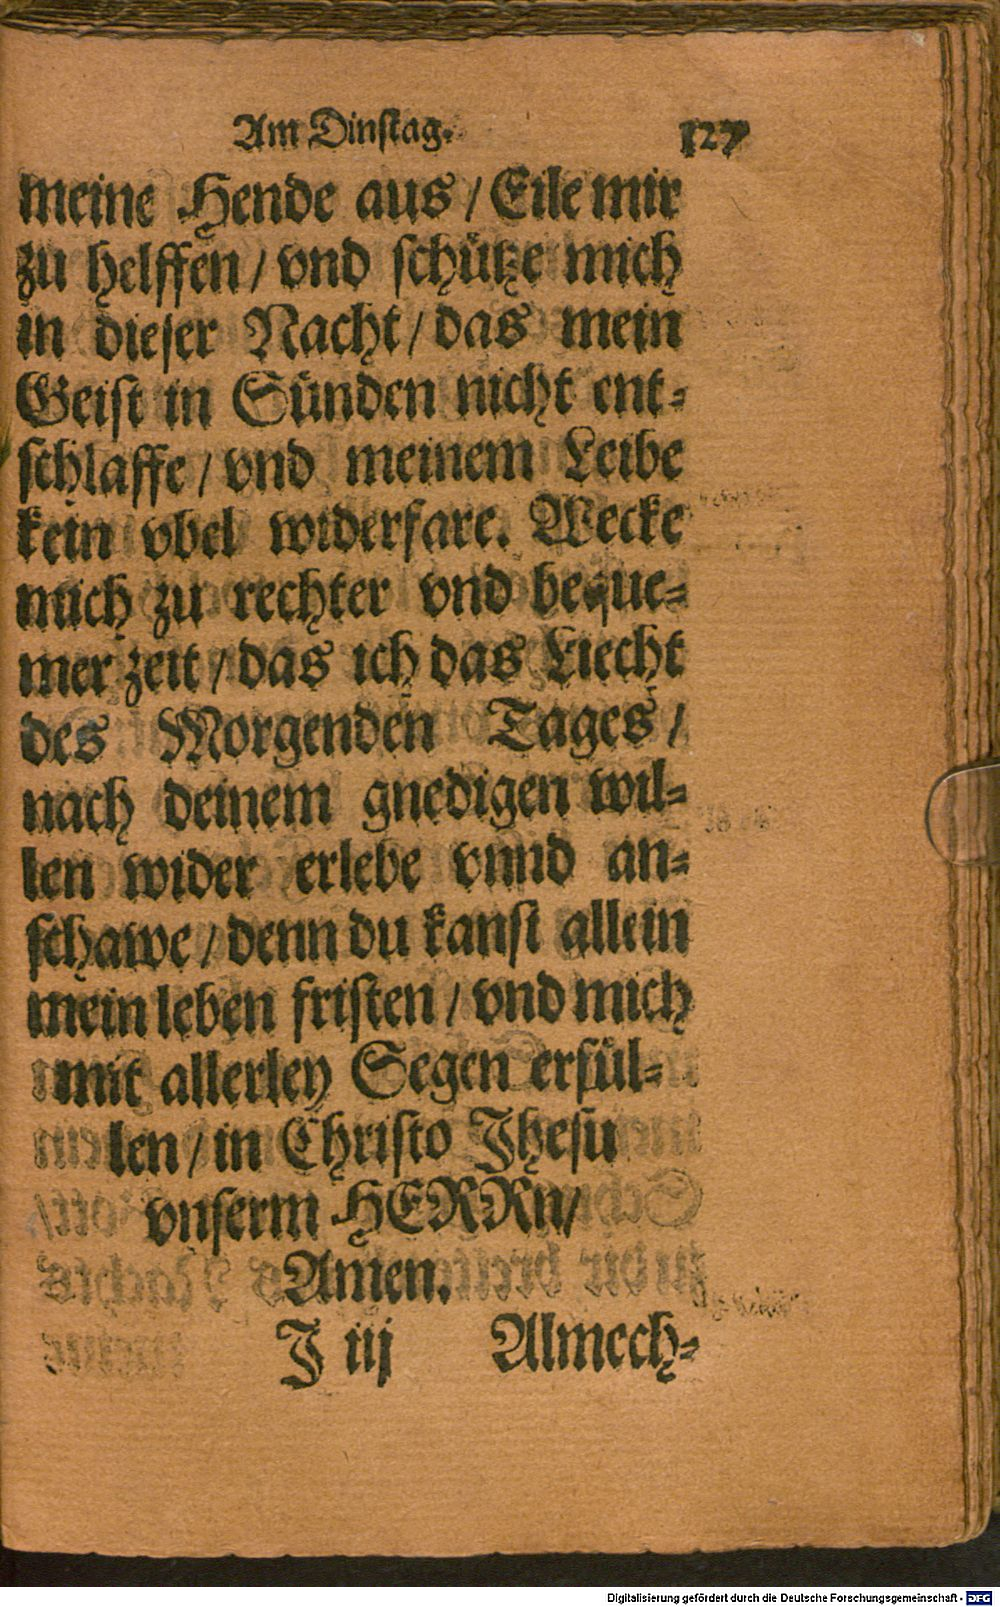 Am Dinstag. 127
meine Hende aus / Eile mir
zu helffen / vnd schütze mich
in dieser Nacht / das mein
Geist in Sünden nicht ent-
schlaffe / vnd meinem Leibe
kein vbel widerfare. Wecke
mich zu rechter vnd beque-
mer zeit / das ich das Liecht
des Morgenden Tages /
nach deinem gnedigen wil-
len wider erlebe vnnd an-
schawe / denn du kanst allein
mein leben fristen / vnd mich
mit allerley Segen erfül-
len / in Christo Jhesu
vnserm HERRn /
Amen.
J iij Almech-
Digitalisierung gefördert durch die Deutsche Forschungsgemeinschaft - DFG